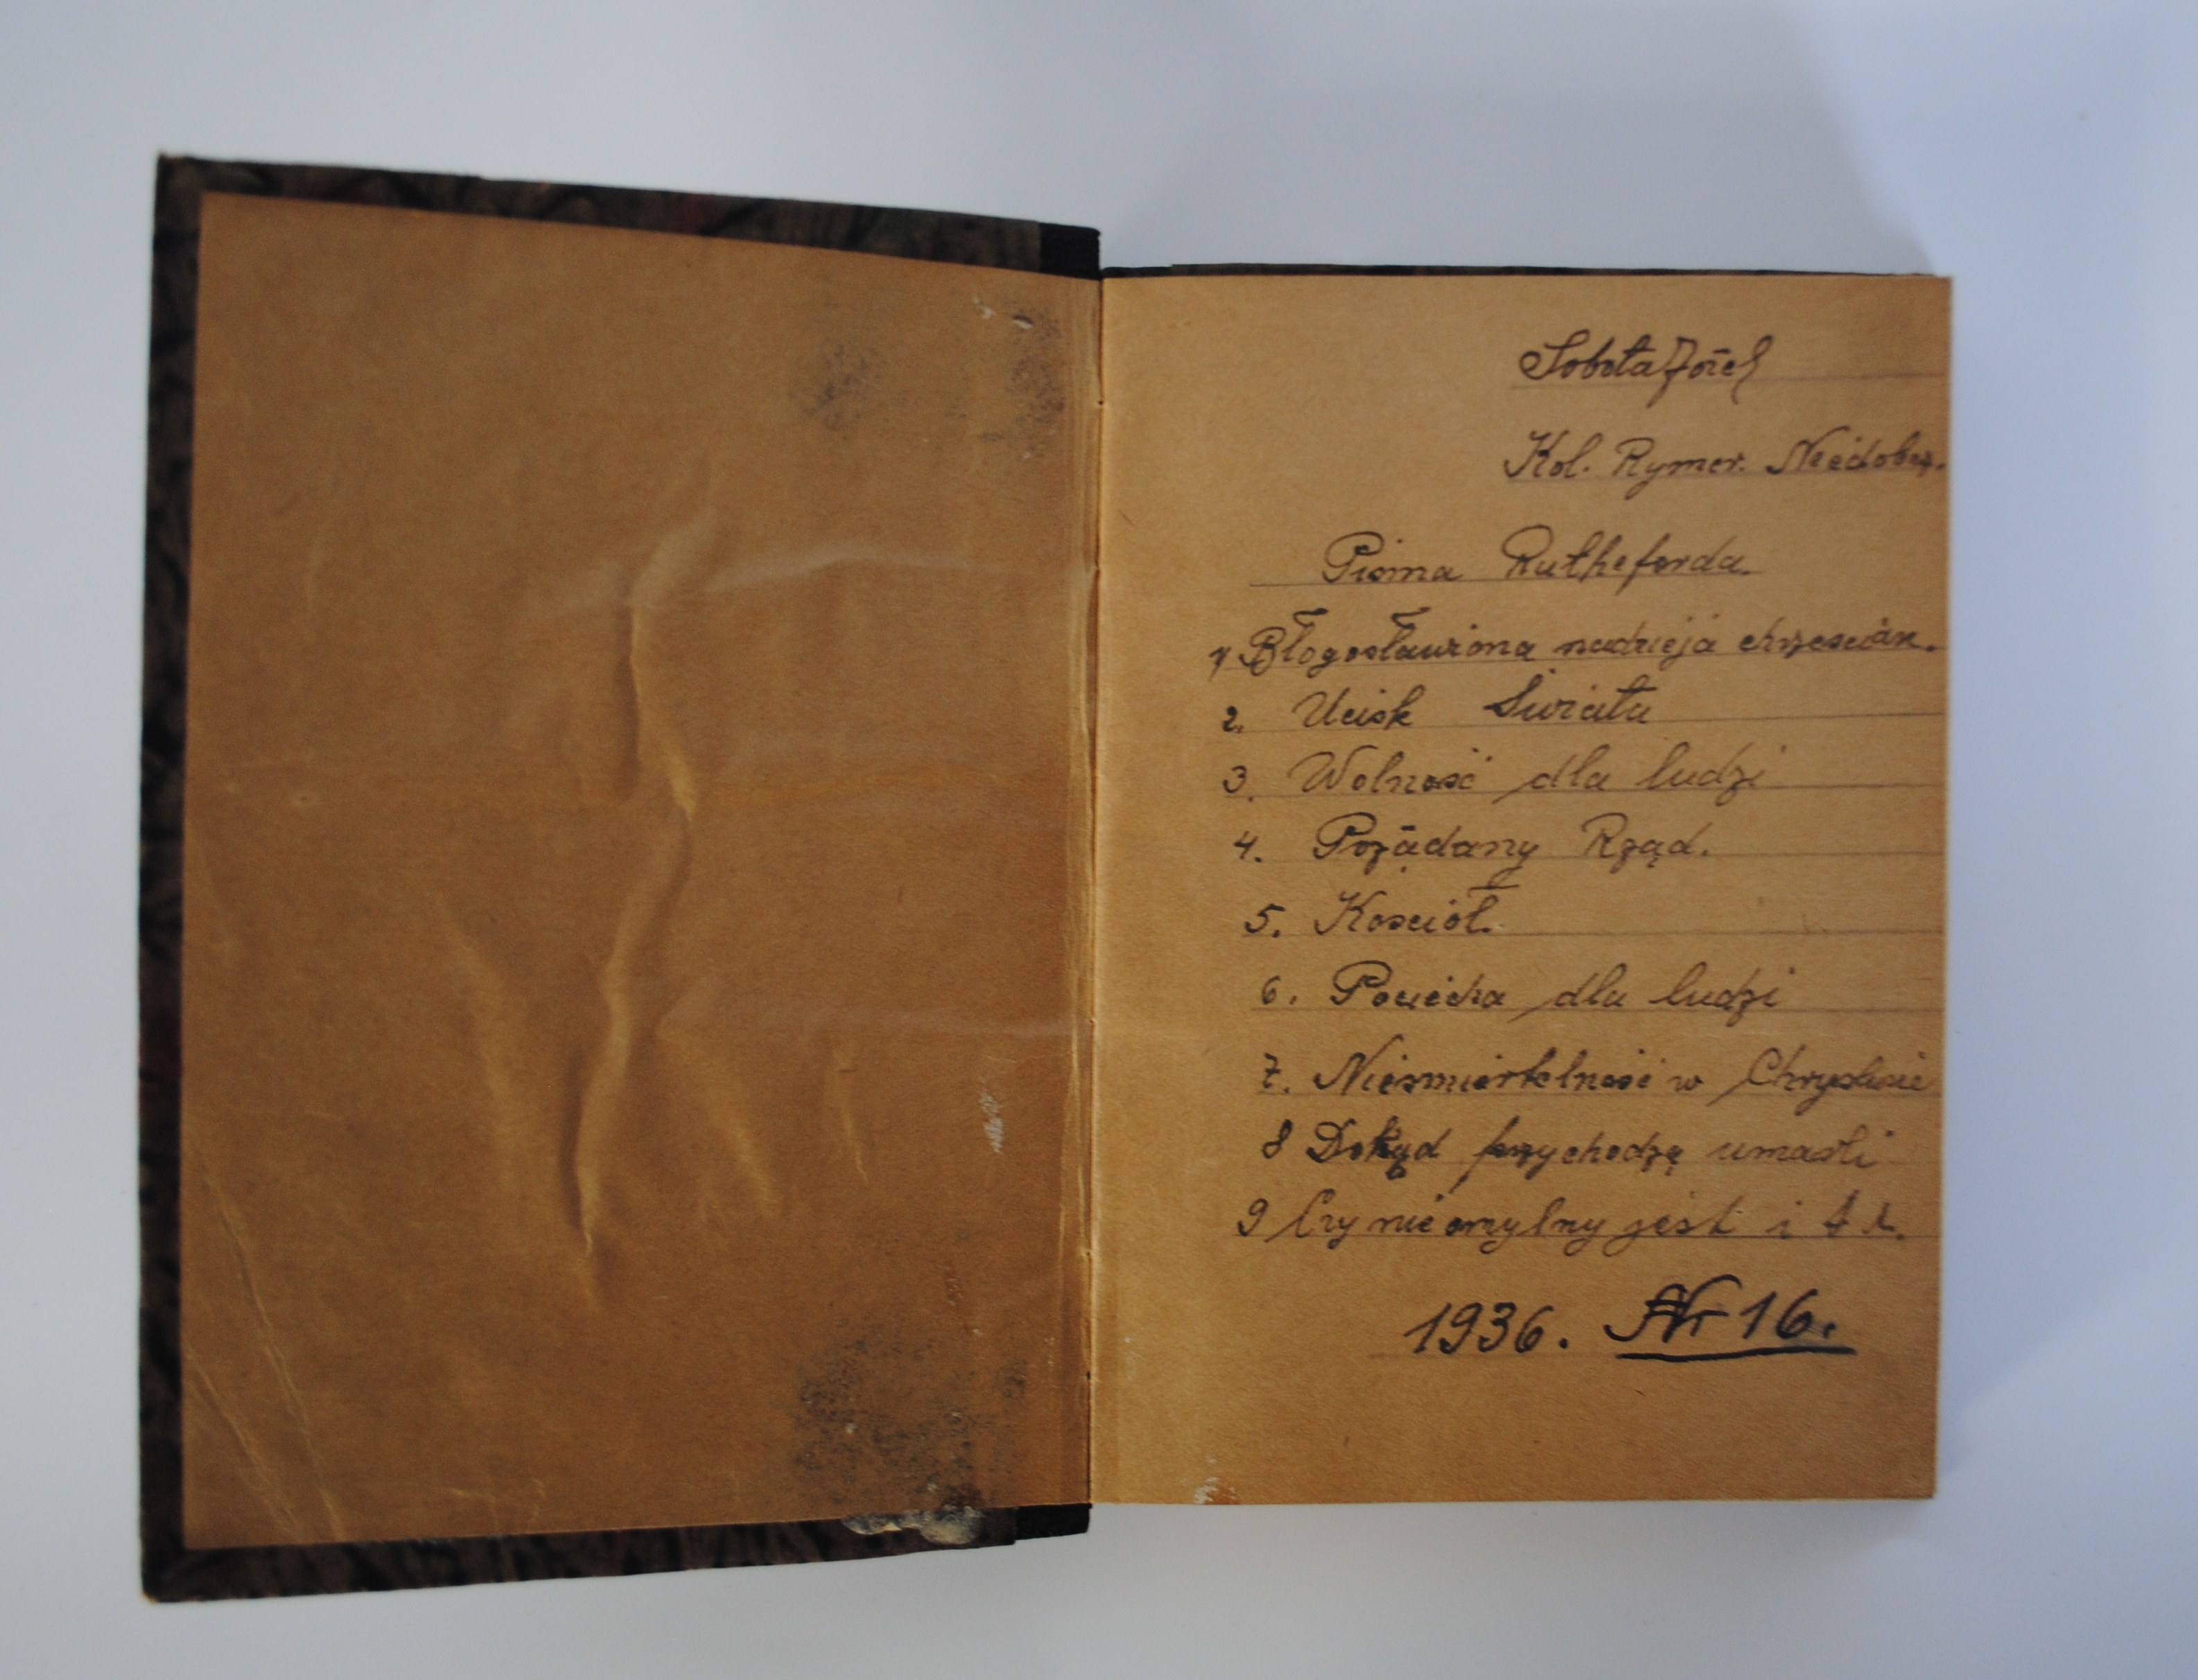 Sobota Józef
Kol. Rymer. Niedobcz.
Pisma Rutheforda.
1 Błogosławiona nadzieja chrześcian.
2. Ucisk Świata
3. Wolność dla ludzi
4. Pożądany Rząd.
5. Kościoł.
6. Pociecha dla ludzi
7. Nieśmiertelność w Chrystusie
8 Dokąd przychodzą umarli
9 Czy nieomylny jest i t d.
1936. Nr 16.